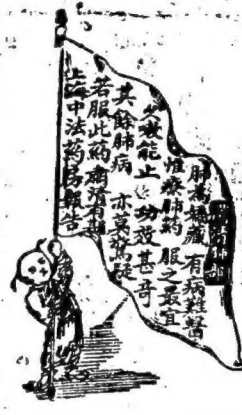 肺為嬌臟 有病難醫
惟療肺藥 服之最宜
久嗽能止 功效甚奇
其餘肺病 亦莫驚疑
若服此藥 肅清有期
上海中法藥房報告